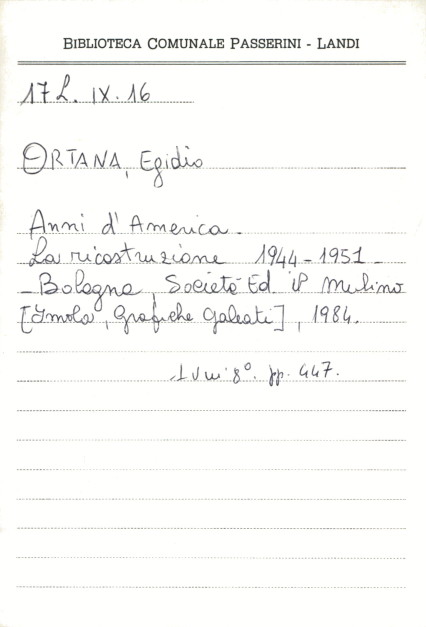 BIBLIOTECA COMUNALE PASSERINI - LANDI
17 L. IX. 16
ORTANA, Egidio
Anni d'America.
La ricostruzione 1944-1951 -
- Bologna, Società Ed. il Mulino
[Imola, Grafiche Galeati], 1984.
1 V in 8°. pp. 447.